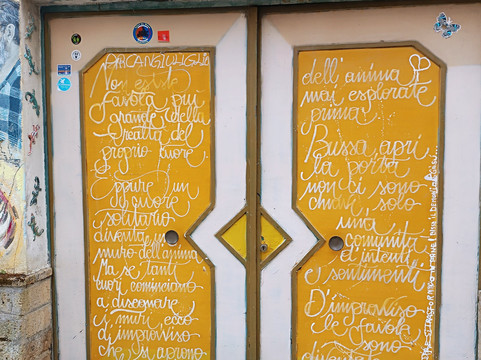 ARCANGIOLIGUO
Non esiste
favola più
grande della
realtà del
proprio cuore.
Eppure un
cuore
solitario
diventa un
muro dell'anima
Ma se tanti
cuori cominciano
a disegnare
i muri, ecco
d'improvviso
che si aprono
dell'anima
mai esplorate
prima!
Bussa, apri
la porta
non ci sono
chiavi, solo
una
comunità
d'intenti
e sentimenti
D'improvviso
le favole
sono